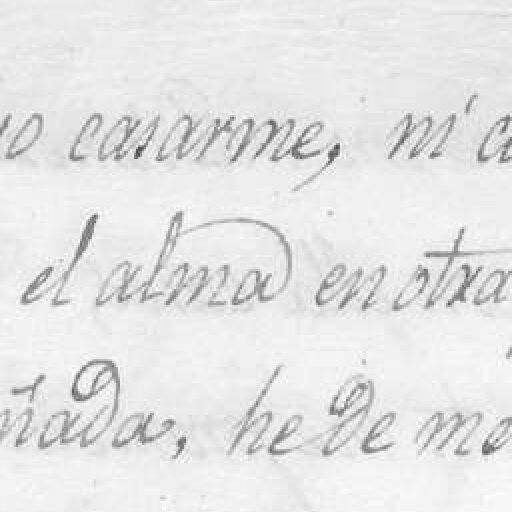 ro casarme, ni c
el alma en otra
ñada, he de mo